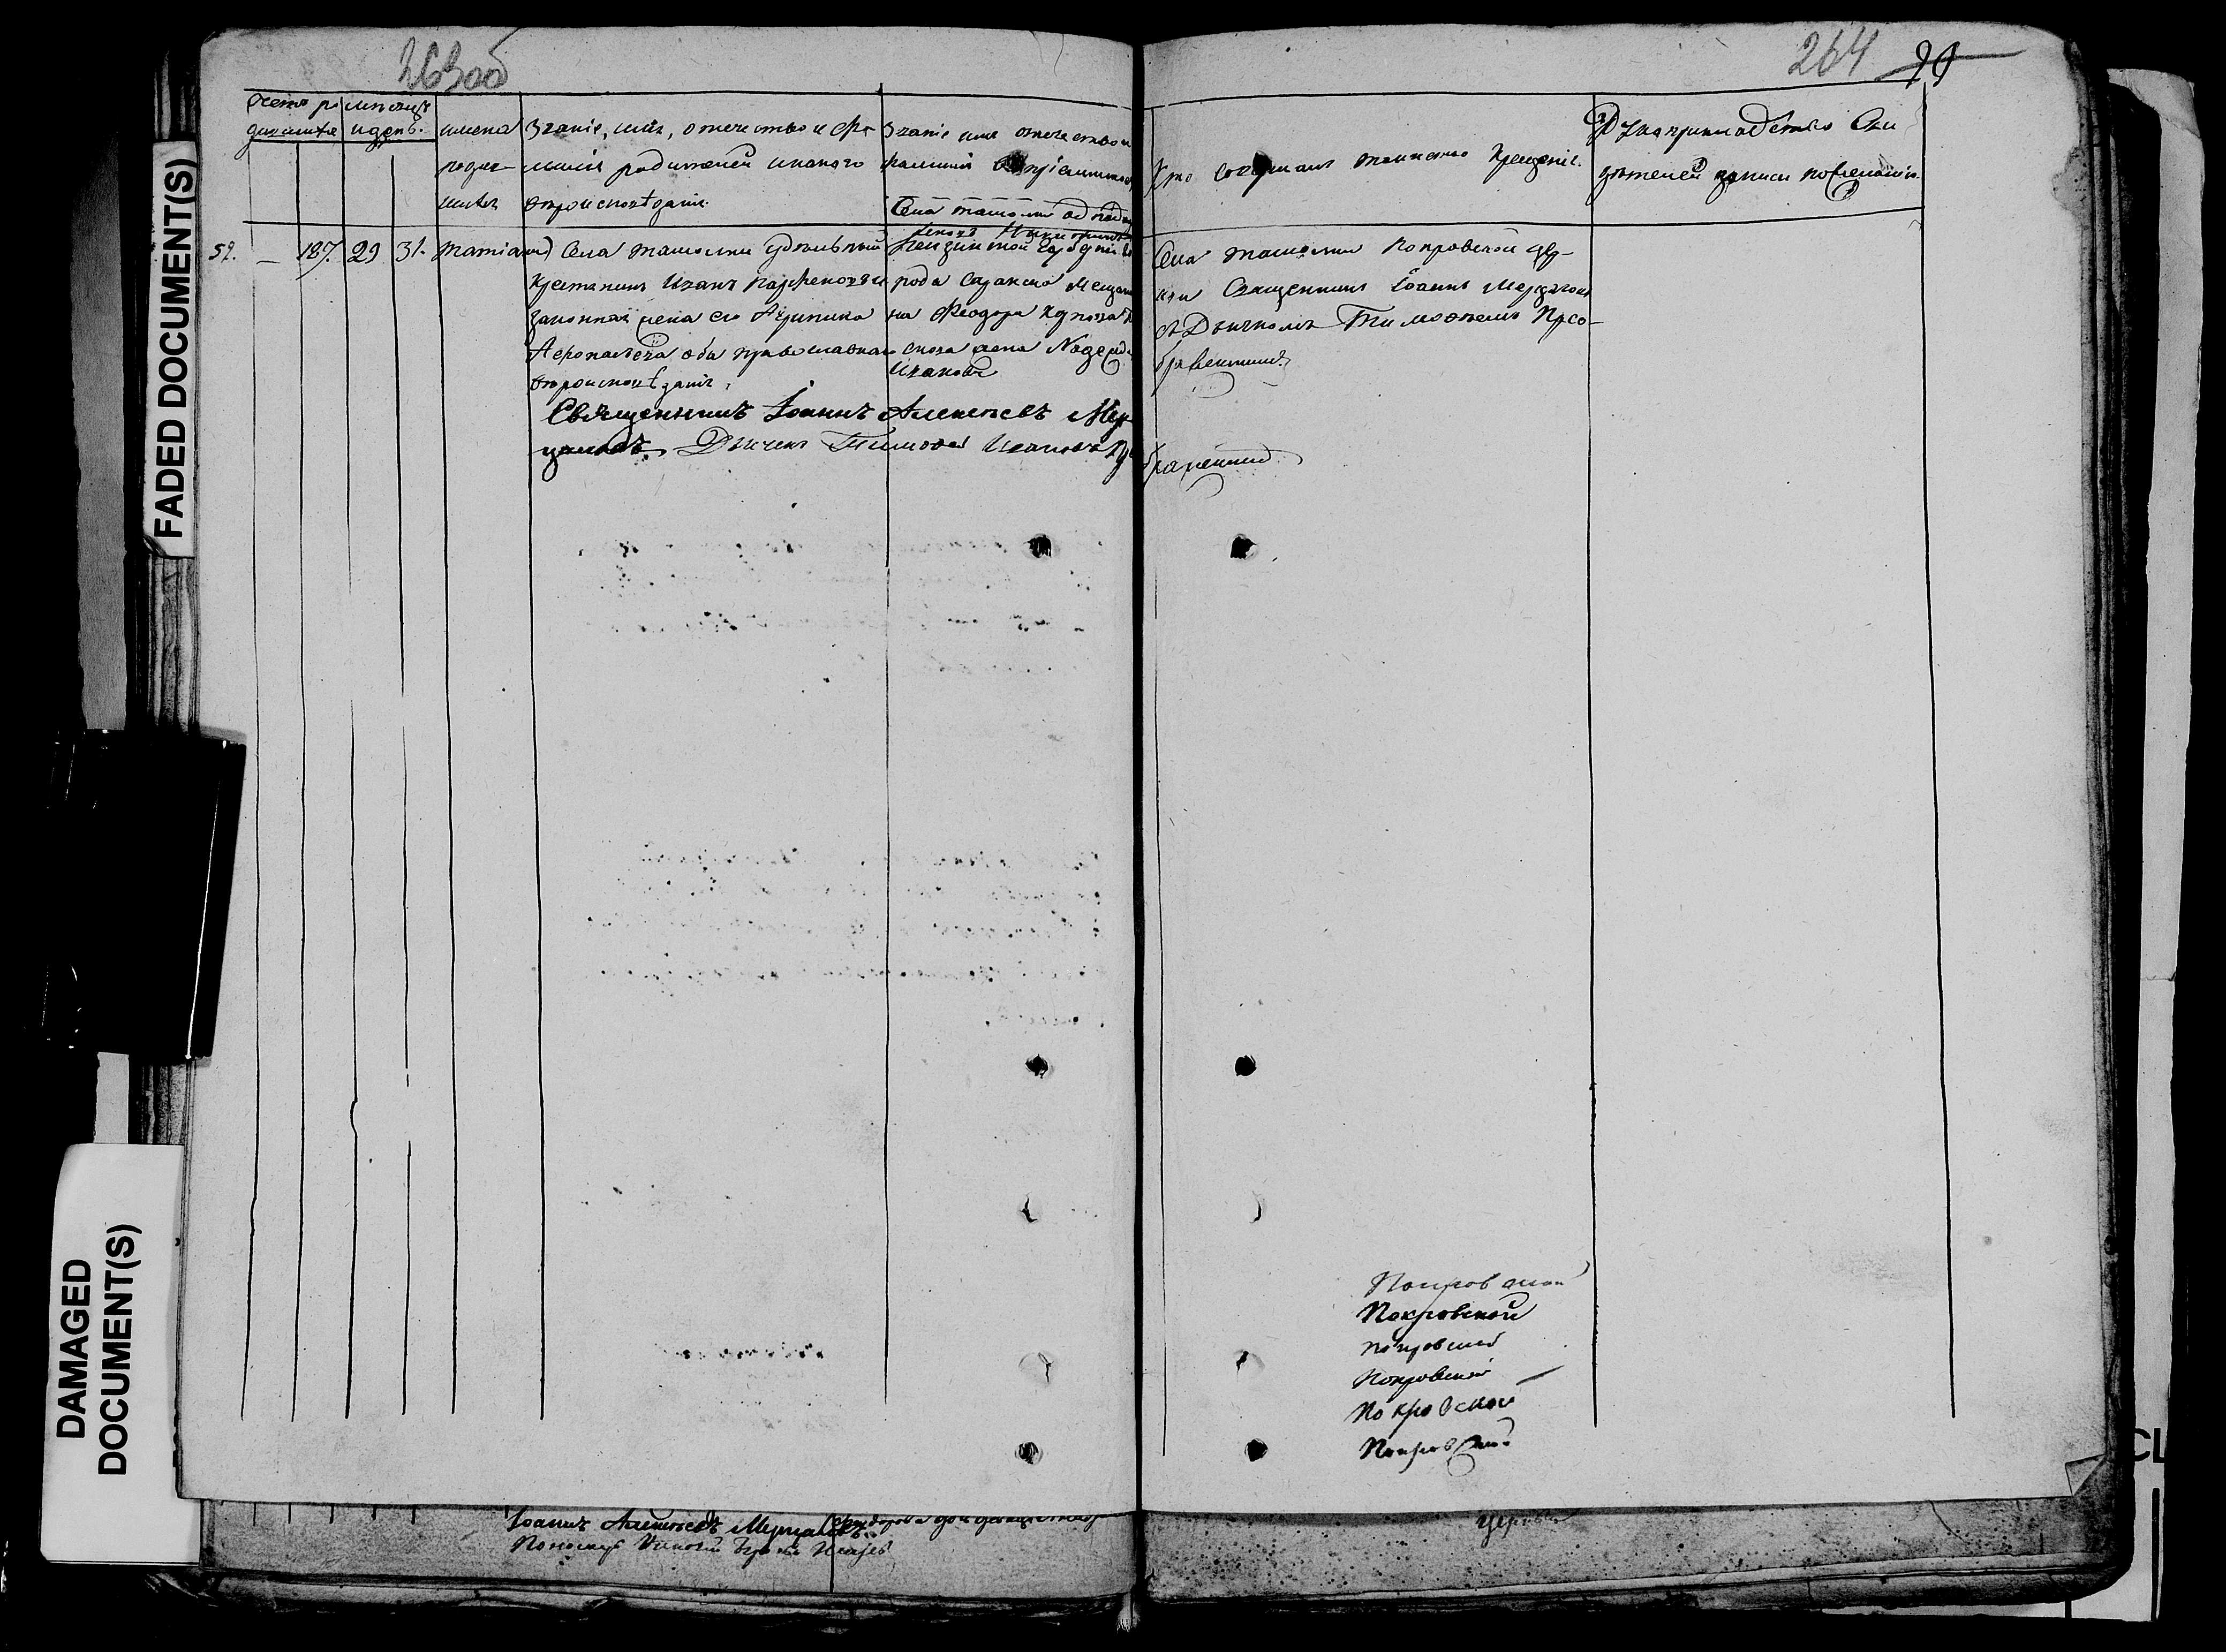 263об
264 29
FADED DOCUMENT(S)
DAMAGED DOCUMENT(S)
Счетъ ро мѣсяцъ
дившихся и день.
имена родив-
шихся
Званіе, имя, отечество и фа-
милія родителей и какого
вѣроисповѣданія.
Званіе имя отечество и
фамилія воспріемников
Кто совершалъ таинство крещенія.
Рукоприкладство сви
дѣтелей записи по желанію.
52. – 187. 29 31. Татіана
Села Ташолки удѣльный
крестьянинъ Иванъ Парфеновъ и
законная жена его Агрипина
оба православнаго
вѣроисповѣданія,
Села Ташолки
Пензинской Губерніи го
рода Саранска мещани
на Феодора
жена Надежда
Иванова
Села Ташолки Покровской цер-
кви Священникъ Іоаннъ Мерцаловъ
съ Дьячкомъ Тимофеемъ Прео-
браженскимъ
Священникъ Іоаннъ Алексѣевъ Мер-
цаловъ. Дьячекъ Тимофей Ивановъ Прео
браженский
Покровской
Покровской
Покровской
Покровской
Покровской
Покровской
Іоаннъ Алексѣевъ Мерцаловъ.
церкви